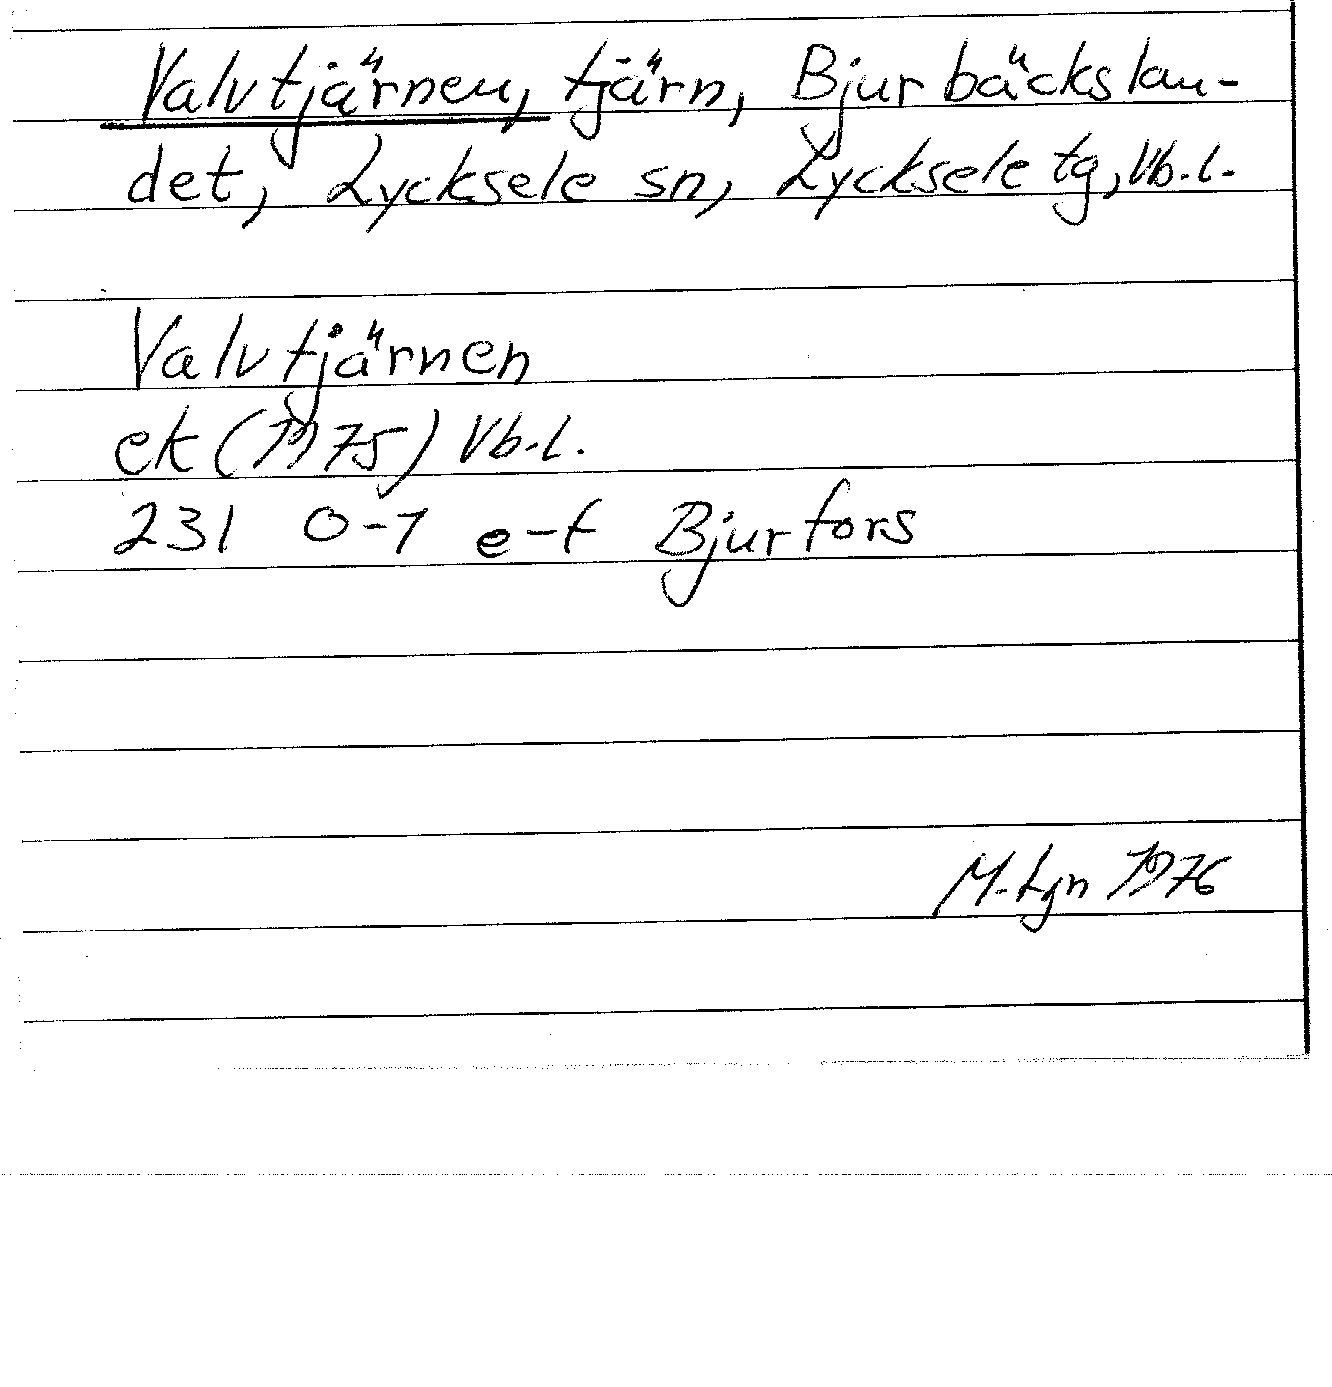 Valvtjärnen, tjärn, Bjurbäckslan-
det, Lycksele sn, Lycksele tg, Vb.l.
Valvtjärnen
ek (1975) Vb.l.
231 0-1 e-f Bjurfors
M-Lgn 1976